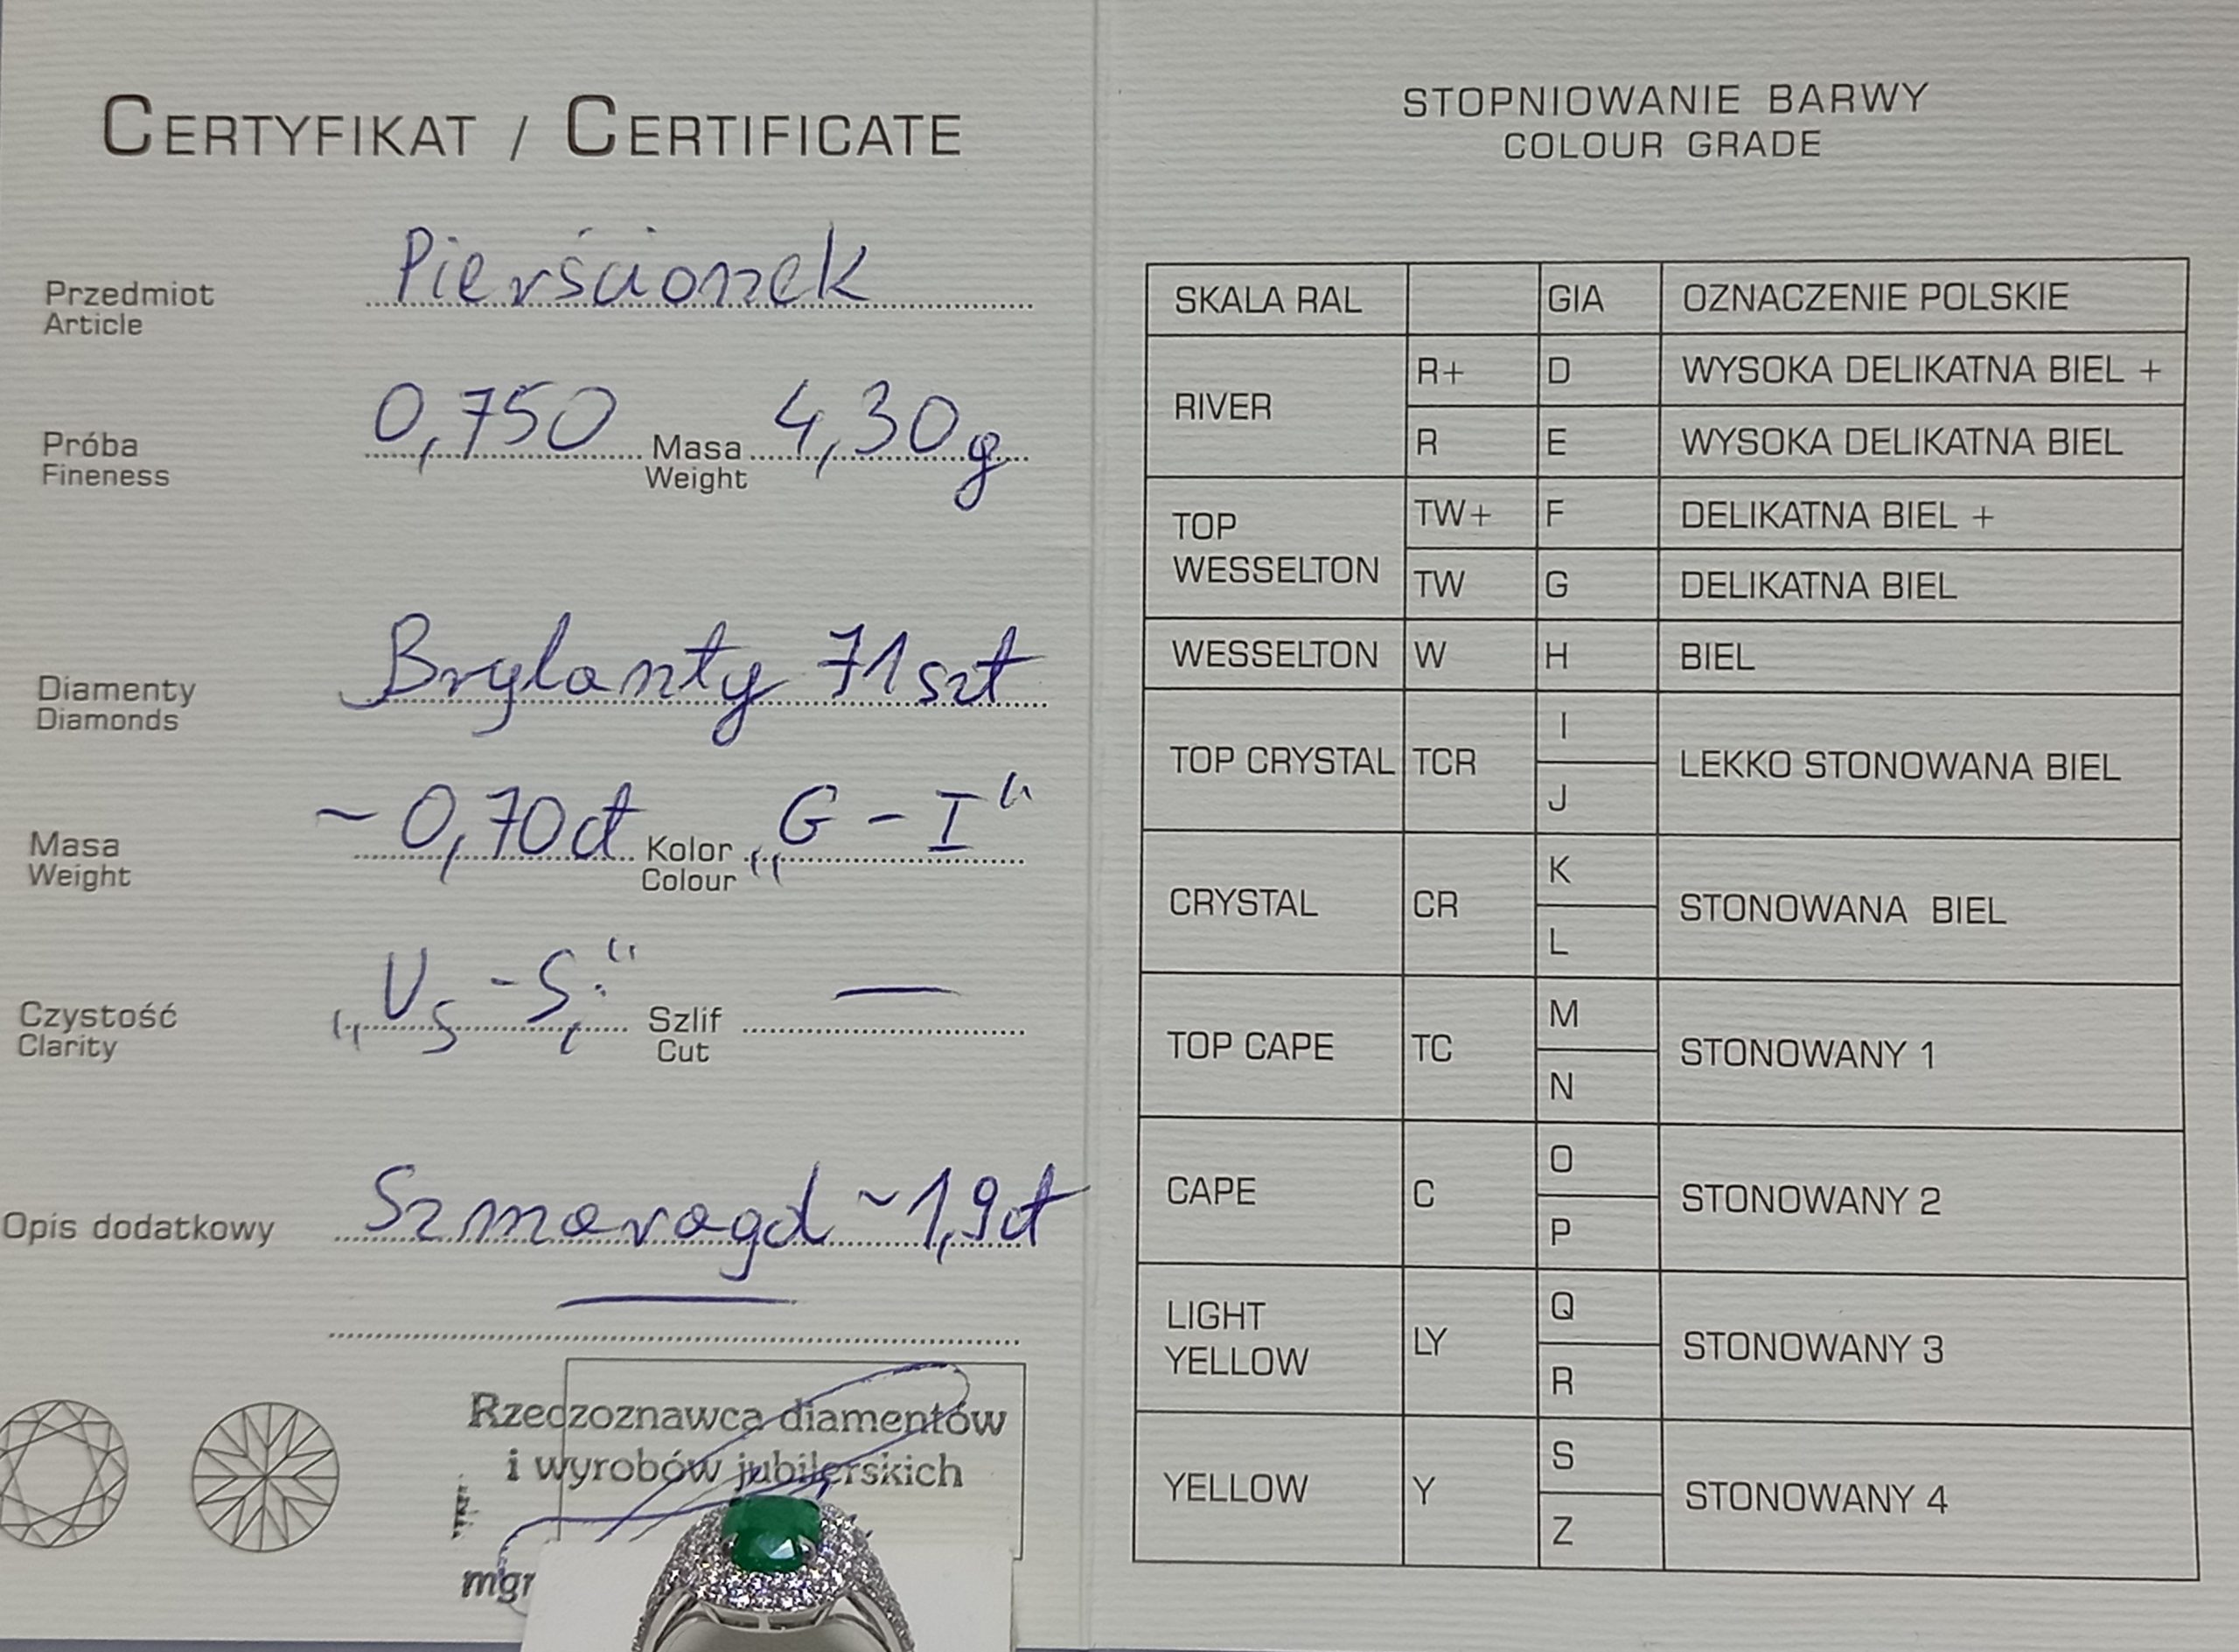 CERTYFIKAT / CERTIFICATE
Przedmiot Pierścionek
Article
Próba 0,750 Masa 4,30g
Fineness Weight
Diamenty Brylanty 71 szt
Diamonds
Masa ~0,70ct Kolor „G-I"
Weight Colour
Czystość „VS-Si" Szlif —
Clarity Cut
Opis dodatkowy Szmaragd ~1,9ct
Rzeczoznawca diamentów
i wyrobów jubilerskich
mgr
STOPNIOWANIE BARWY
COLOUR GRADE
SKALA RAL GIA OZNACZENIE POLSKIE
RIVER
R+ D WYSOKA DELIKATNA BIEL +
R E WYSOKA DELIKATNA BIEL
TOP
WESSELTON
TW+ F DELIKATNA BIEL +
TW G DELIKATNA BIEL
WESSELTON W H BIEL
TOP CRYSTAL TCR I J LEKKO STONOWANA BIEL
CRYSTAL CR K L STONOWANA BIEL
TOP CAPE TC M N STONOWANY 1
CAPE C O P STONOWANY 2
LIGHT
YELLOW
LY Q R STONOWANY 3
YELLOW Y S Z STONOWANY 4